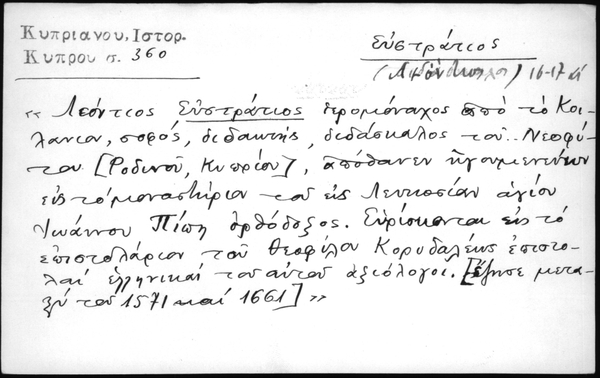 Κυπριανου, Ιστορ.
Κυπρου σ. 360
Εὐστράτιος
16-17 αἰ
« Λεόντιος Εὐστράτιος ἱερομόναχος ἀπὸ τὸ Κοι-
λάνιον, σοφός, διδακτής, διδάσκαλος τοῦ.. Νεοφύ-
του [Ροδινοῦ, Κυπρίου], ἀπόθανεν ἡγουμενεύων
εἰς τὸ μοναστήριον τοῦ εἰς Λευκοσίαν ἁγίου
Ἰωάννου Πίπη ὀρθόδοξος. Εὑρίσκονται εἰς τὸ
ἐπιστολάριον τοῦ Θεοφίλου Κορυδαλέως ἐπιστο-
λαί ἑλληνικαί τοῦ αὐτοῦ ἀξιόλογοι. [ἔζησε μετα-
ξύ τοῦ 1571 καί 1661] »